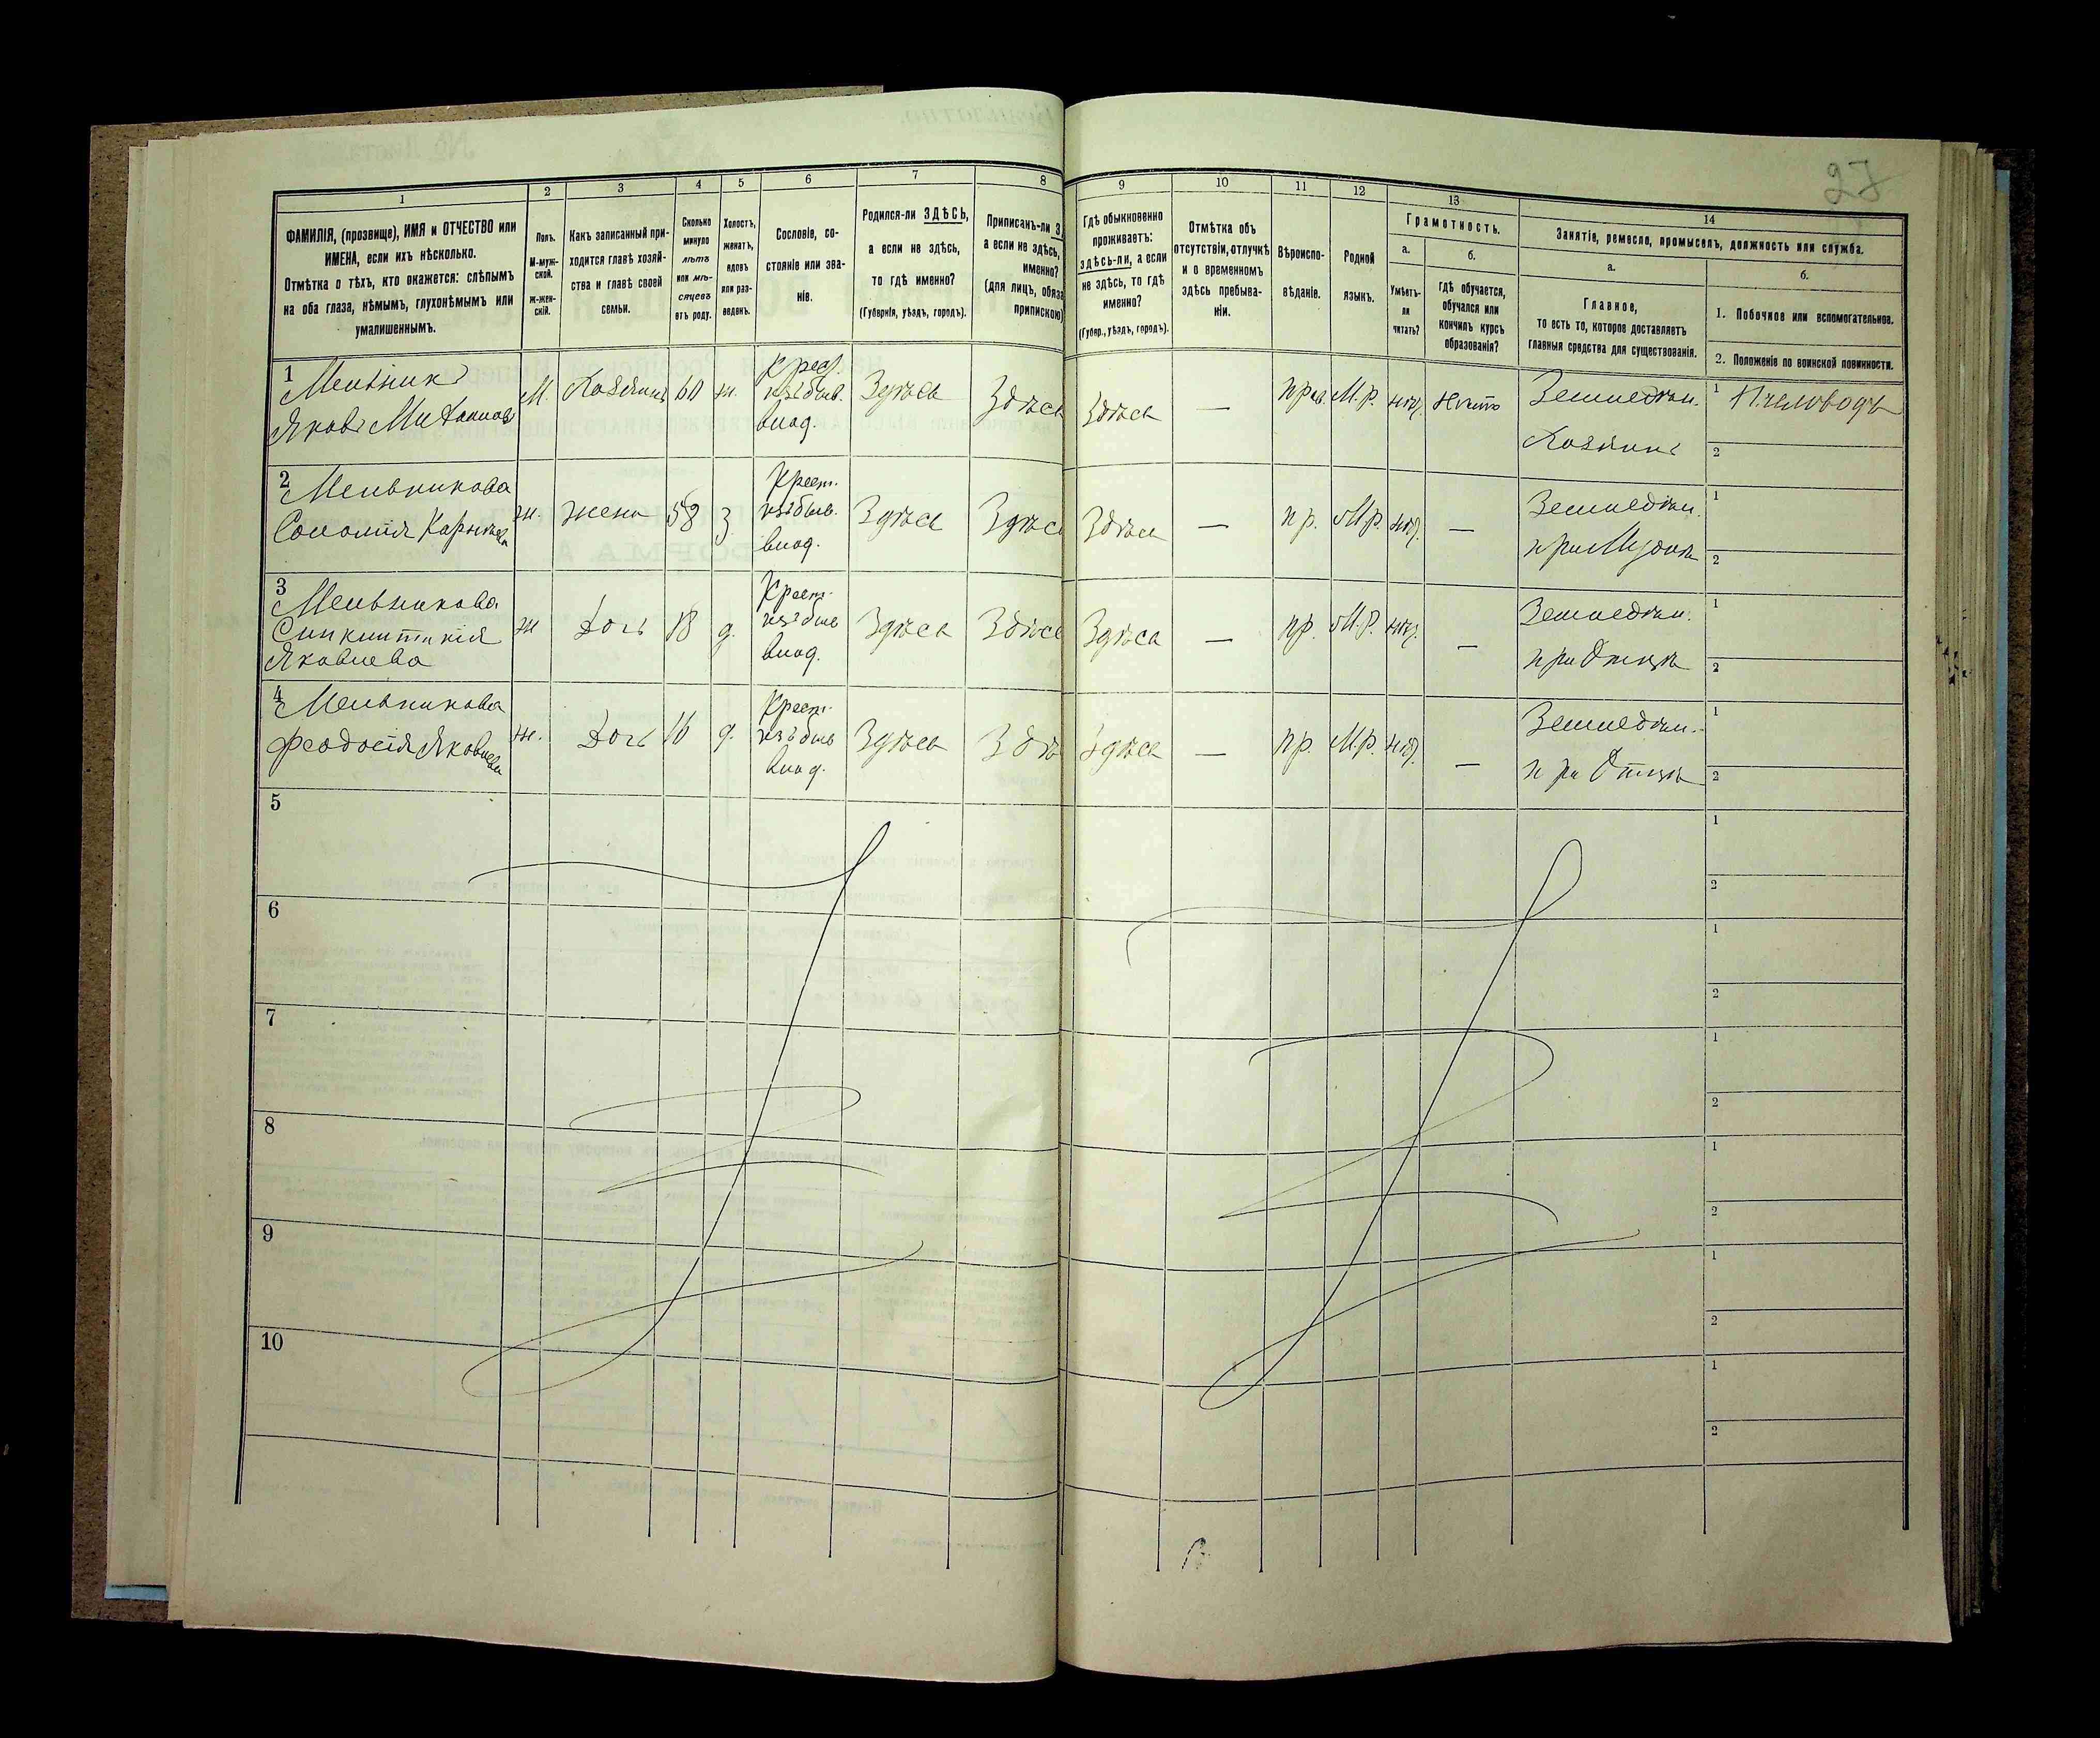 27
1
2
3
4
5
6
7
8
9
10
11
12
13
14
ФАМИЛІЯ, (прозвище), ИМЯ и ОТЧЕСТВО или
ИМЕНА, если ихъ нѣсколько.
Отмѣтка о тѣхъ, кто окажется: слѣпымъ
на оба глаза, нѣмымъ, глухонѣмымъ или
умалишеннымъ.
Полъ.
М-муж-
ской.
ж-жен-
скій.
Какъ записанный при-
ходится главѣ хозяй-
ства и главѣ своей
семьи.
Сколько
минуло
лѣтъ
или мѣ-
сяцевъ
отъ роду.
Холостъ,
женатъ,
вдовъ
или раз-
веденъ.
Сословіе, со-
стояніе или зва-
ніе.
Родился-ли ЗДѢСЬ,
а если не здѣсь,
то гдѣ именно?
(Губернія, уѣздъ, городъ).
Приписанъ-ли З
а если не здѣсь,
именно?
(для лицъ, обяза
припискою)
Гдѣ обыкновенно
проживаетъ:
здѣсь-ли, а если
не здѣсь, то гдѣ
именно?
(Губер., уѣздъ, городъ).
Отмѣтка объ
отсутствіи, отлучкѣ
и о временномъ
здѣсь пребыва-
ніи.
Вѣроиспо-
вѣданіе.
Родной
языкъ.
Грамотность.
а.
Умѣетъ-
ли
читать?
б.
гдѣ обучается,
обучался или
кончилъ курсъ
образованія?
Занятіе, ремесло, промыселъ, должность или служба.
а.
Главное,
то есть то, которое доставляетъ
главныя средства для существованія.
б.
1. Побочное или вспомогательное.
2. Положеніе по воинской повинности.
1 Мельникъ
Яковъ Михаиловъ
М. Хозяинъ 60 ж. Крест. изъ быв. влад. Здѣсь Здѣсь Здѣсь — прав. М.р. нѣт. Нигдѣ
Земледѣл.
Хозяинъ
1 Пчеловодъ
2
2 Мельникова
Соломія
ж. жена 58 з. Крест. изъ быв. влад. Здѣсь Здѣсь Здѣсь — пр. М.р. нѣт. —
Земледѣл.
при Мужѣ
1
2
3 Мельникова
Синклитикія
Яковлева
ж Дочь 18 д. Крест. изъ быв влад. Здѣсь Здѣсь Здѣсь — пр. М.р. нѣт. —
Земледѣл.
при Отцѣ
1
2
4 Мельникова
Феодосія Яковлева
ж. Дочь 16 д. Крест. изъ быв влад. Здѣсь Здѣ Здѣсь — пр. М.р. нѣт. —
Земледѣл.
при Отцѣ
1
2
5
1
2
6
1
2
7
1
2
8
1
2
9
1
2
10
1
2